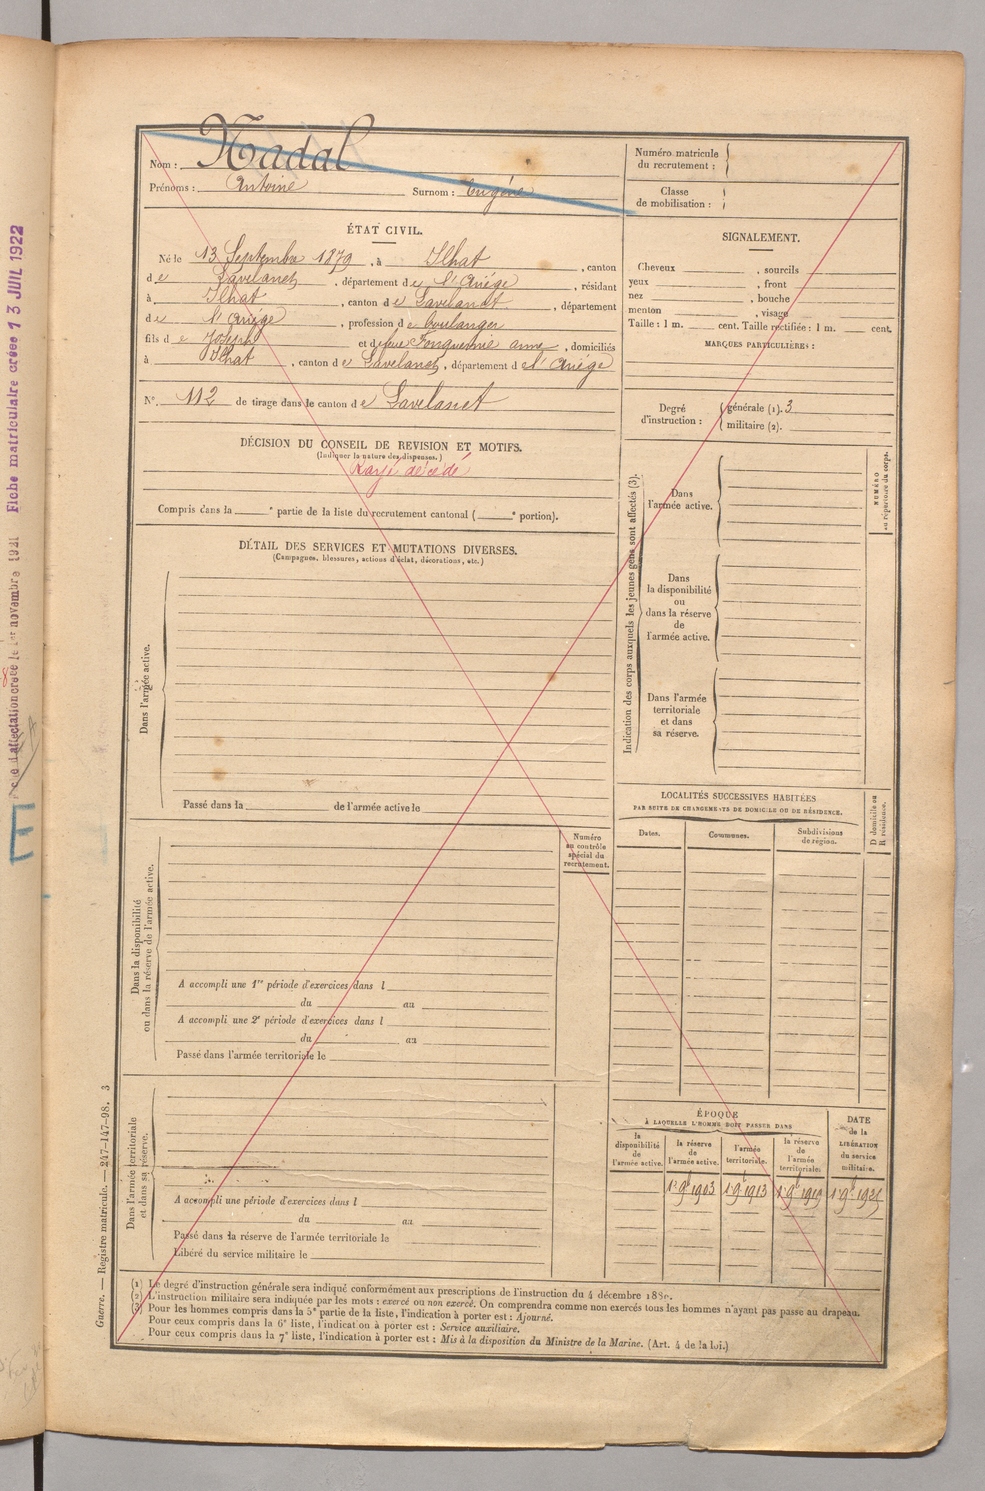 Nom : Nadal
Prénoms : Antoine Surnom : Eugène
ÉTAT CIVIL.
Né le 13 Septembre 1879, à Ilhat, canton
de Lavelanet, département de l'Ariège, résidant
à Ilhat, canton de Lavelanet, département
de l'Ariège, profession de boulanger
fils de Joseph et de feue anne, domiciliés
à Ilhat, canton de Lavelanet, département de l'Ariège
N° 112 de tirage dans le canton de Lavelanet
DÉCISION DU CONSEIL DE REVISION ET MOTIFS.
(Indiquer la nature des dispenses.)
Rayé décédé
Compris dans la e partie de la liste du recrutement cantonal ( e portion).
DÉTAIL DES SERVICES ET MUTATIONS DIVERSES.
(Campagnes, blessures, actions d'éclat, décorations, etc.)
Dans l'armée active.
Passé dans la de l'armée active le
Numéro
au contrôle
spécial du
recrutement.
Dans la disponibilité
ou dans la réserve de l'armée active.
A accompli une 1re période d'exercices dans l
du au
A accompli une 2e période d'exercices dans l
du au
Passé dans l'armée territoriale le
Dans l'armée territoriale
et dans sa réserve.
A accompli une période d'exercices dans l
du au
Passé dans la réserve de l'armée territoriale le
Libéré du service militaire le
Numéro matricule
du recrutement :
Classe
de mobilisation :
SIGNALEMENT.
Cheveux , sourcils
yeux , front
nez , bouche
menton , visage
Taille : 1 m. cent. Taille rectifiée : 1 m. cent.
MARQUES PARTICULIÈRES :
Degré
d'instruction :
générale (1). 3
militaire (2).
Indication des corps auxquels les jeunes gens sont affectés (3).
Dans
l'armée active.
NUMÉRO
au répertoire du corps.
Dans
la disponibilité
ou
dans la réserve
de
l'armée active.
Dans l'armée
territoriale
et dans
sa réserve.
LOCALITÉS SUCCESSIVES HABITÉES
PAR SUITE DE CHANGEMENTS DE DOMICILE OU DE RÉSIDENCE.
Dates. Communes. Subdivisions
de région.
D domicile ou
R résidence.
ÉPOQUE
À LAQUELLE L'HOMME DOIT PASSER DANS
la
disponibilité
de
l'armée active.
la réserve
de
l'armée active.
l'armée
territoriale.
la réserve
de
l'armée
territoriale.
DATE
de la
LIBÉRATION
du service
militaire.
1er 9bre 1903 1er 9bre 1913 1er 9bre 1919
(1) Le degré d'instruction générale sera indiqué conformément aux prescriptions de l'instruction du 4 décembre 1889.
(2) L'instruction militaire sera indiquée par les mots : exercé ou non exercé. On comprendra comme non exercés tous les hommes n'ayant pas passé au drapeau.
(3) Pour les hommes compris dans la 5e partie de la liste, l'indication à porter est : Ajourné.
Pour ceux compris dans la 6e liste, l'indication à porter est : Service auxiliaire.
Pour ceux compris dans la 7e liste, l'indication à porter est : Mis à la disposition du Ministre de la Marine. (Art. 4 de la loi.)
Guerre. — Registre matricule. — 247-147-98. 3
Fiche matriculaire créée 13 JUIL 1922
d'affectation créée le 1er novembre 1921
E